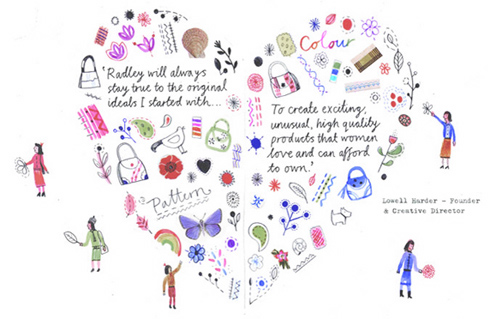 'Radley will always
stay true to the original
ideals I started with...
Pattern
Colour
To create exciting,
unusual, high quality
products that women
love and can afford
to own.'
Lowell Harder - Founder
& Creative Director